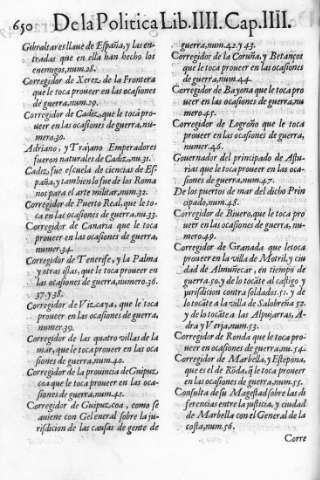 650 De la Politica Lib. IIII. Cap. IIII.
Gibraltar es llaue de España, y las en-
tradas que en ella han hecho los
enemigos, num. 28.
Corregidor de Xerez de la Frontera
que le toca proueer en las ocasiones
de guerra, num. 29.
Corregidor de Cadiz, que le toca pro-
ueer en las ocasiones de guerra, nu-
mero. 30.
Adriano, y Trajano Emperadores
fueron naturales de Cadiz, nu. 31.
Cadiz, fue escuela de ciencias de Es-
paña, y tambien lo fue de los Roma
nos para el arte militar, num. 32.
Corregidor de Puerto Real, que le to-
ca en las ocasiones de guerra, nu. 33.
Corregidor de Canaria que le toca
proueer en las ocasiones de guerra,
numer. 34.
Corregidor de Tenerife, y la Palma
y otras islas, que le toca proueer en
las ocasiones de guerra, numero. 36.
37. y 38.
Corregidor de Vizcaya, que le toca
proueer en las ocasiones de guerra,
numer. 39.
Corregidor de las quatro villas de la
mar, que le toca proueer en las oca
siones de guerra, num. 40.
Corregidor de la prouincia de Guipuz
coa que le toca proueer en las oca-
siones de guerra, num. 41.
Corregidor de Guipuzcoa, como se
auiene con General sobre la ju-
risdicion de las causas de gente de
guerra, num. 42. y 43.
Corregidor de la Coruña, y Betanços
que le toca proueer en las ocasiones
de guerra, num. 44.
Corregidor de Bayona que le toca pro
ueer en las ocasiones de guerra, nu
mero. 45.
Corregidor de Logroño que le toca
proueer en las ocasiones de guerra,
numer. 46.
Gouernador del principado de Astu-
rias que le toca proueer en las oca-
siones de guerra, num. 47.
De los puertos de mar del dicho Prin
cipado, num. 48.
Corregidor de Biuero, que le toca pro
ueer en las ocasiones de guerra, nu-
mero. 49.
Corregidor de Granada que le toca
proueer en la villa de Motril, y ciu
dad de Almuñecar, en tiempo de
guerra. 50. y de lo tocãte al castigo y
jurisdicion contra soldados. 51. y de
lo tocãte a la villa de Salobreña 52.
y de lo tocãte a las Alpujarras, A-
dra y Verja, num. 53.
Corregidor de Ronda que le toca pro-
ueer en ocasiones de guerra, nu. 54.
Corregidor de Marbella, y Estepona,
que es el de Rõda, q̃ le toca proueer
en las ocasiones de guerra, num. 55.
Consulta de su Magestad sobre las di
ferencias entre la justicia, y ciudad
de Marbella con el General de la
costa, num. 56.
Corre